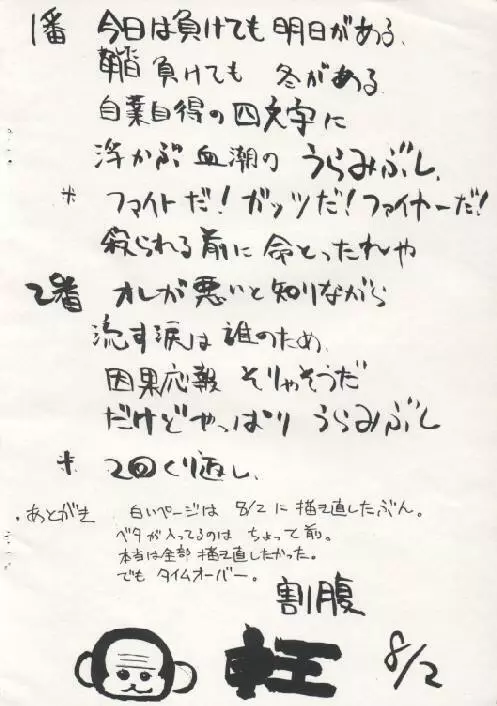 1番 今日は負けても 明日がある、
負けても 冬がある
自業自得の四文字に
浮かぶ 血潮の うらみぶし、
* ファイトだ!ガッツだ!ファイヤーだ!
殺られる前に 命とったれや
2番 オレが悪いと知りながら
流す涙は 誰のため、
因果応報 そりゃそうだ
だけどやっぱり うらみぶし
* 2回くり返し、
・あとがき 白いページは 8/2 に 描き直したぶん。
ベタが入ってるのは ちょって前。
本当は全部 描き直したかった。
でも タイムオーバー。
割腹
8/2